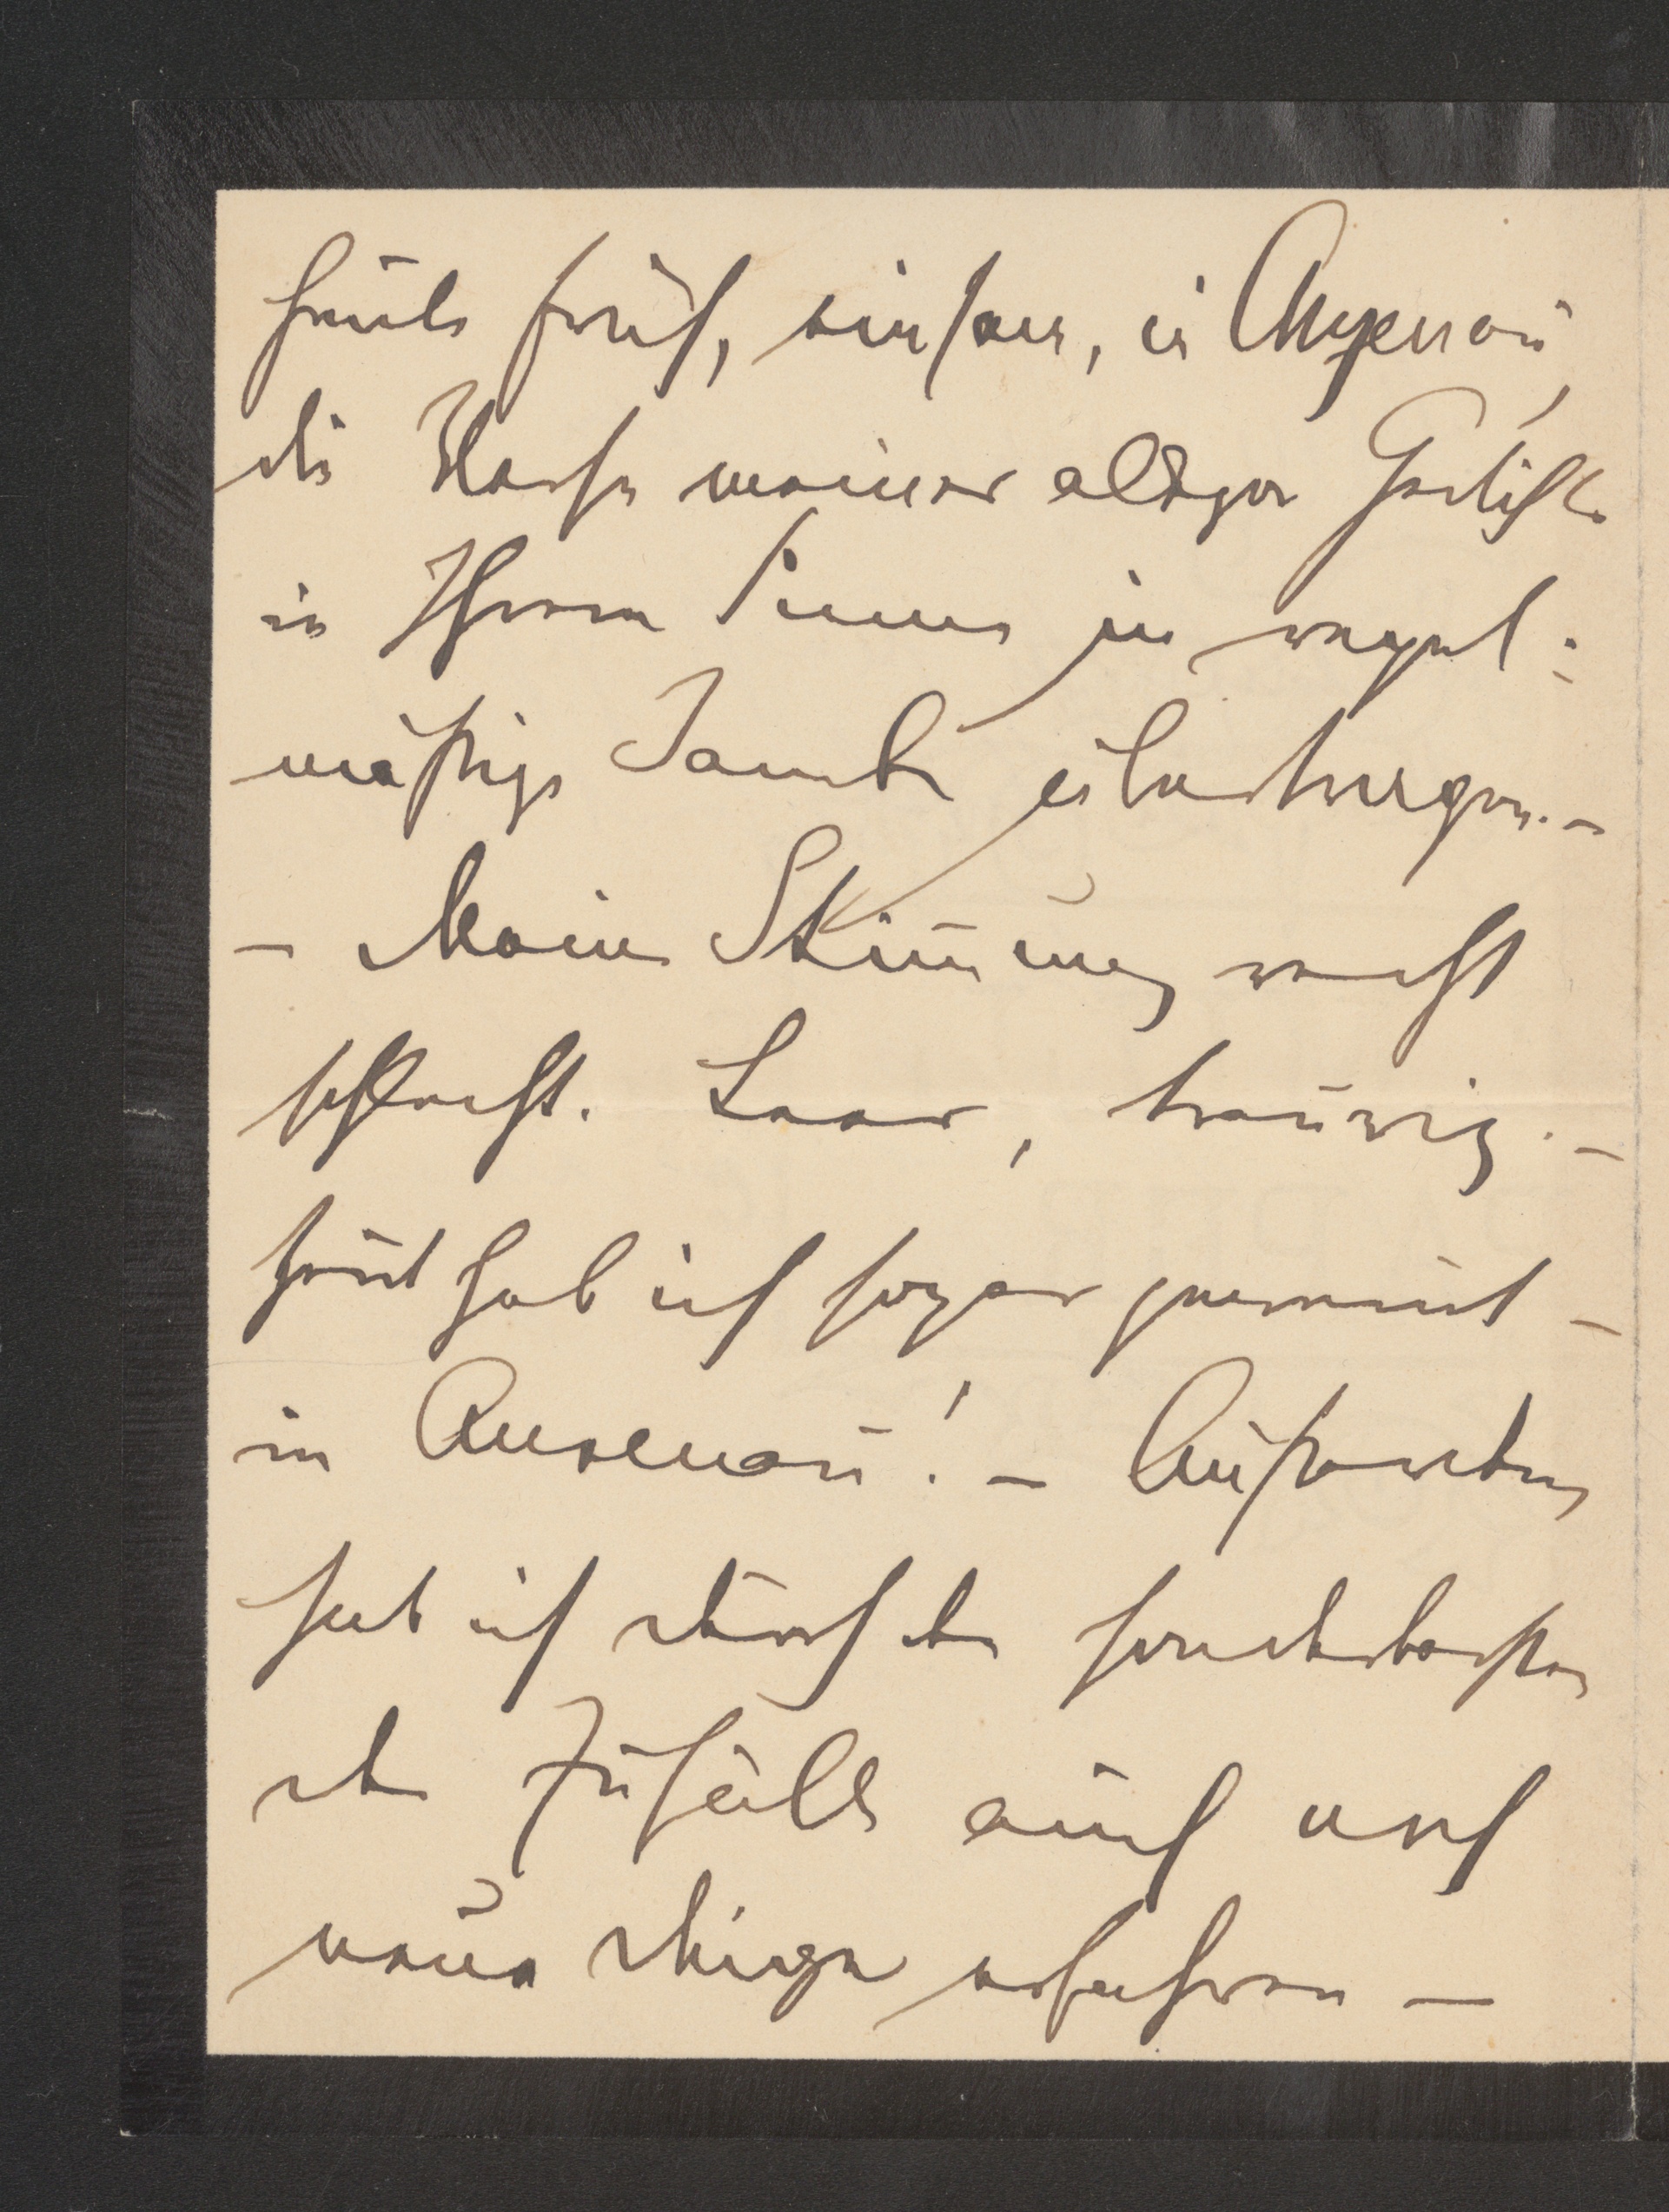 heute früh, einsam, in Anzenau,
die Verse meiner ältern Gedichte
in Ihrem Sinne in regel=
mäßige Jamben zu übertragen. –
– Meine Stimmung recht
schlecht. Leer, traurig. –
heut hab ich sogar geweint –
in Anzenau! – Außerdem
hab ich durch den sonderbarsten
der Zufälle auch noch
neue Dinge erfahren –